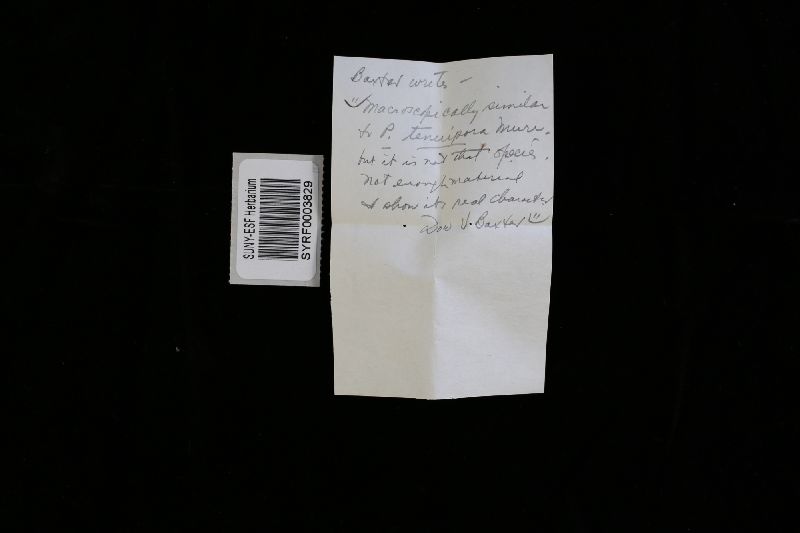 SUNY-ESF Herbarium
SYRF0003829
Baxter writes —
"Macroscopically similar
to P. tenuipora Murr.
but it is not that species.
Not enough material
to show its real character
Dow V. Baxter"